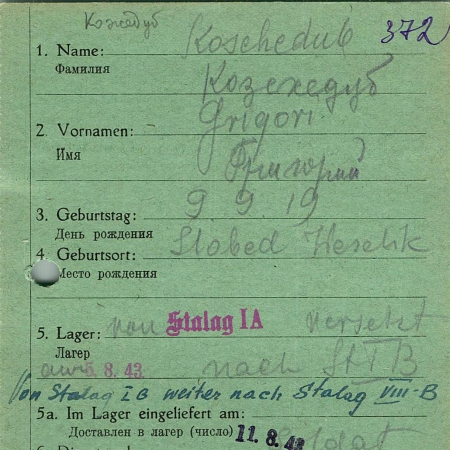 Кожедуб
1. Name: Koschedub 372
Фамилия Козехедуб
2. Vornamen: Grigori
Имя Григорий
3. Geburtstag: 9 9 19
День рождения
4. Geburtsort: Slobed
Место рождения
5. Lager: von Stalag IA versetzt
Лагер am 5. 8. 43 nach St I B
Von Stalag I B weiter nach Stalag VIII-B
5a. Im Lager eingeliefert am:
Доставлен в лагер (число) 11. 8. 43 Soldat